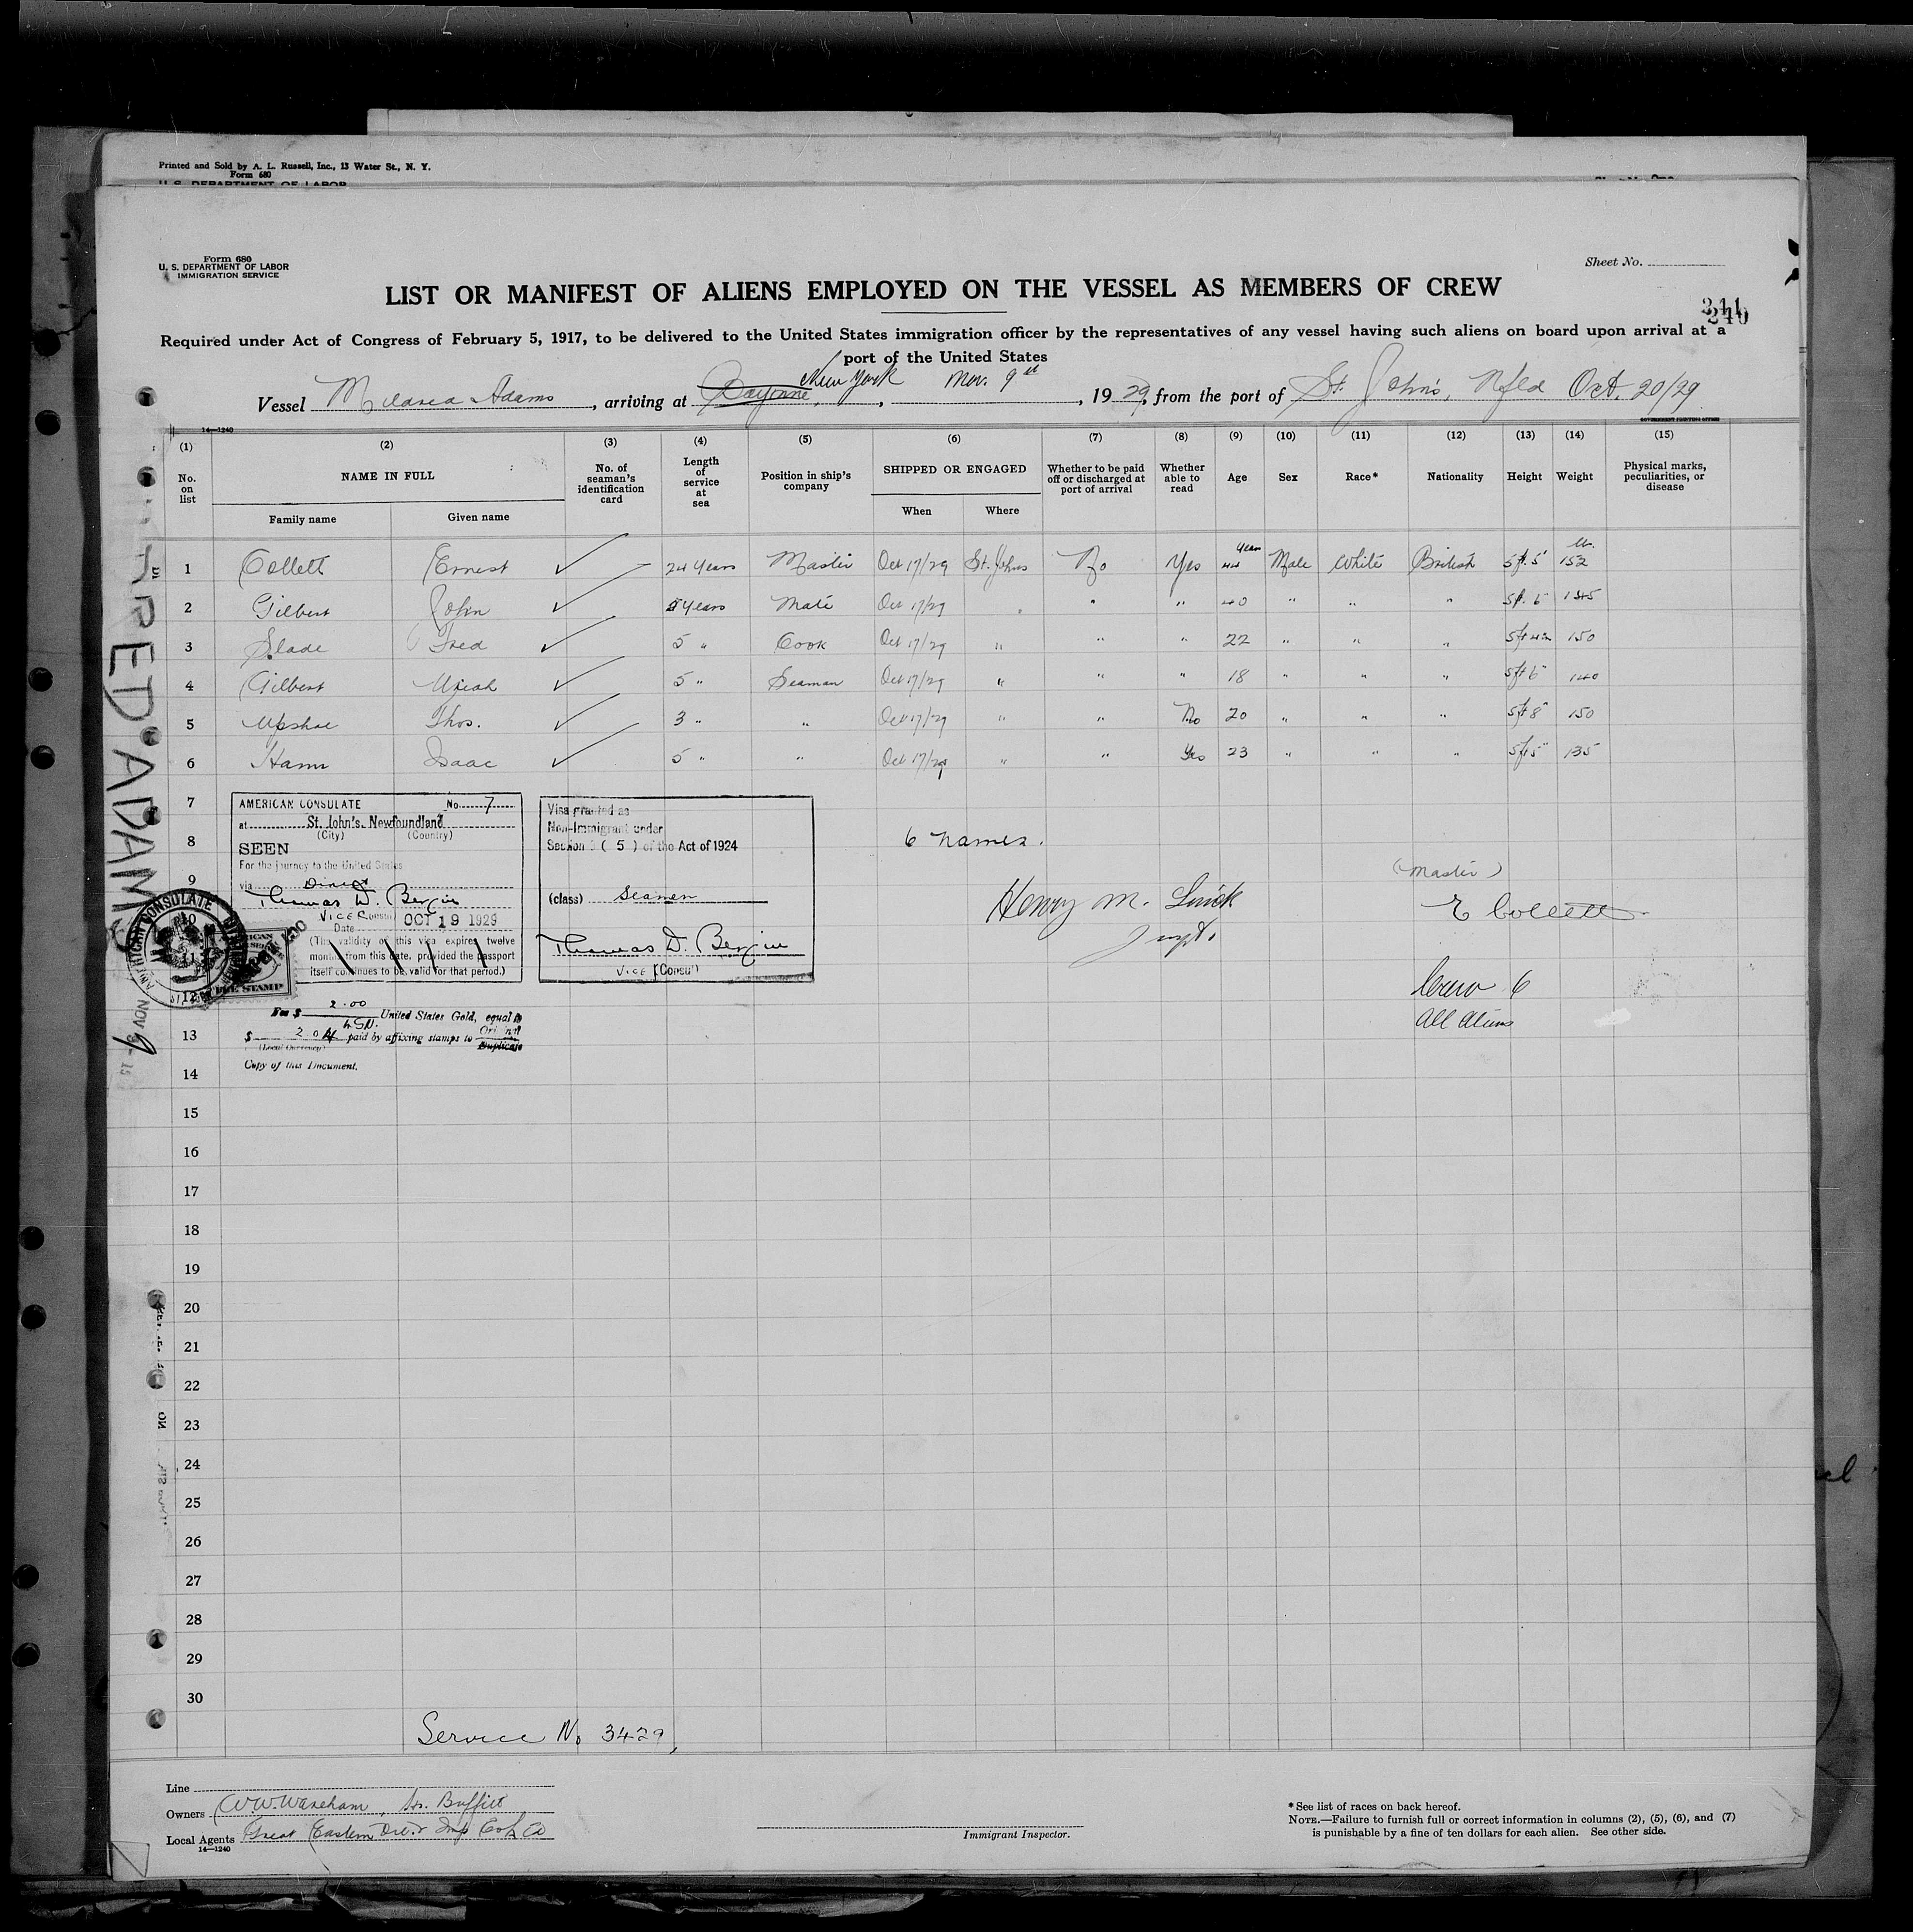 Printed and Sold by A. L. Russell, Inc., 13 Water St., N. Y.
Form 680
U. S. DEPARTMENT OF LABOR
Form 680
U. S. DEPARTMENT OF LABOR
IMMIGRATION SERVICE
Sheet No.
LIST OR MANIFEST OF ALIENS EMPLOYED ON THE VESSEL AS MEMBERS OF CREW
240
Required under Act of Congress of February 5, 1917, to be delivered to the United States immigration officer by the representatives of any vessel having such aliens on board upon arrival at a
port of the United States
Vessel Adams, arriving at Bayonne, New York, Nov. 9th, 1929, from the port of St. John's, Nfld Oct. 20/29
14—1240 GOVERNMENT PRINTING OFFICE
(1) (2) (3) (4) (5) (6) (7) (8) (9) (10) (11) (12) (13) (14) (15)
No. on list NAME IN FULL No. of seaman's identification card Length of service at sea Position in ship's company SHIPPED OR ENGAGED Whether to be paid off or discharged at port of arrival Whether able to read Age Sex Race* Nationality Height Weight Physical marks, peculiarities, or disease
Family name Given name When Where
1 Collett Ernest 24 Years Master Oct 17/29 St. Johns No Yes 44 years Male White British 5 ft. 5 152
2 Gilbert John 5 Years Mate Oct 17/29 " " 40 " " " 5 ft. 6 145
3 Slade Fred 5 " Cook Oct 17/29 " " " 22 " " " 5 ft 4 in 150
4 Gilbert Uziah 5 " Seaman Oct 17/29 " " " 18 " " " 5 ft 6 140
5 Upshae Thos. 3 " " Oct 17/29 " " No 20 " " " 5 ft 8" 150
6 Hann Isaac 5 " " Oct 17/29 " " Yes 23 " " " 5 ft 5" 135
7
8
9
10
11
12
13
14
15
16
17
18
19
20
21
22
23
24
25
26
27
28
29
30
AMERICAN CONSULATE No. 7
at St. John's, Newfoundland
(City) (Country)
SEEN
For the journey to the United States
via Direct
Thomas D. Bergin
VICE Consul
Date OCT 19 1929
(The validity of this visa expires twelve
months from this date, provided the passport
itself continues to be valid for that period.)
Visa granted as
Non-Immigrant under
Section 3 ( 5 ) of the Act of 1924
(class) Seamen
Thomas D. Bergin
VICE (Consul)
AMERICAN CONSULATE
FEE STAMP
Fee $ 2.00 United States Gold, equal to
$ 2.04 paid by affixing stamps to Original
Duplicate
(Local Currency)
Copy of this Document.
6 names.
Henry M.
Inspt.
(Master)
E Collett
Crew 6
All Aliens
ADAMS
NOV 9
Service No 3429
Line
Owners W.W. Wareham,
Local Agents Great Eastern
14—1240
Immigrant Inspector.
* See list of races on back hereof.
NOTE.—Failure to furnish full or correct information in columns (2), (5), (6), and (7)
is punishable by a fine of ten dollars for each alien. See other side.